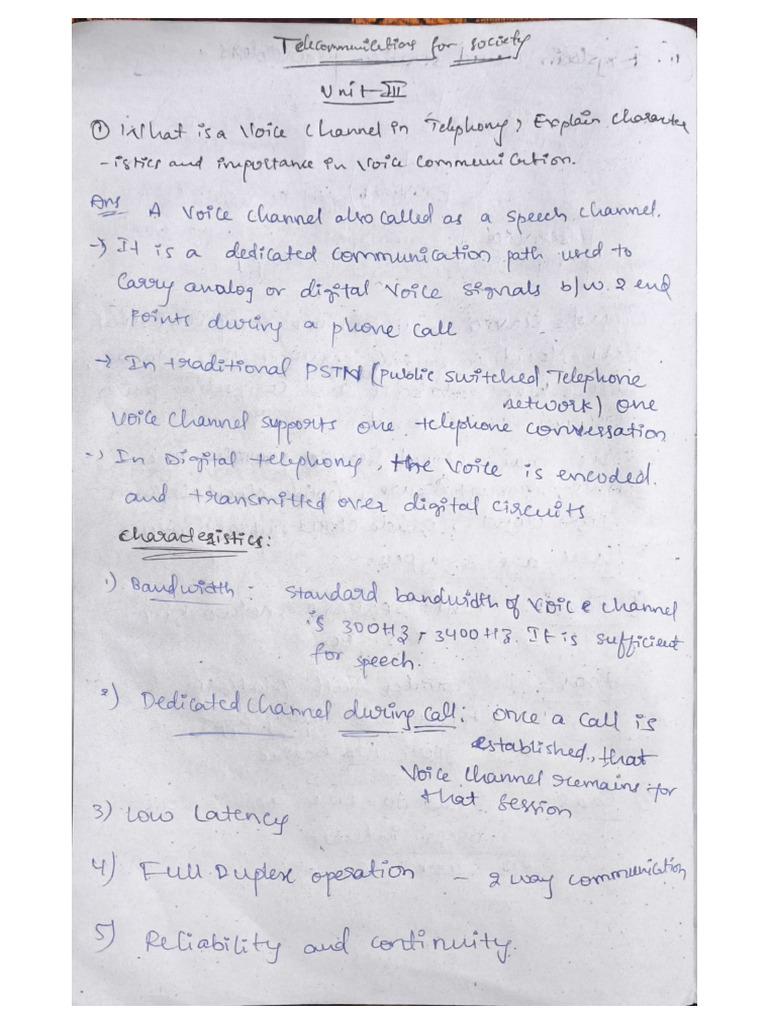 Telecommunications for society
Unit-III
① What is a Voice Channel in Telephony, Explain Character
-istics and importance in Voice Communication.
Ans A Voice Channel also called as a speech channel.
→ It is a dedicated communication path used to
Carry analog or digital Voice signals b/w. 2 end
Points during a phone call
→ In traditional PSTN (Public Switched, Telephone
network) one
Voice Channel supports one telephone conversation
→ In Digital telephony, the Voice is encoded.
and transmitted over digital circuits
Characteristics:
1) Bandwidth: Standard bandwidth of Voice channel
is 300Hz, 3400Hz. It is sufficient
for speech.
2) Dedicated Channel during call: once a call is
established, that
Voice Channel remains for
that session
3) Low Latency
4) Full Duplex operation - 2 way communication
5) Reliability and continuity.